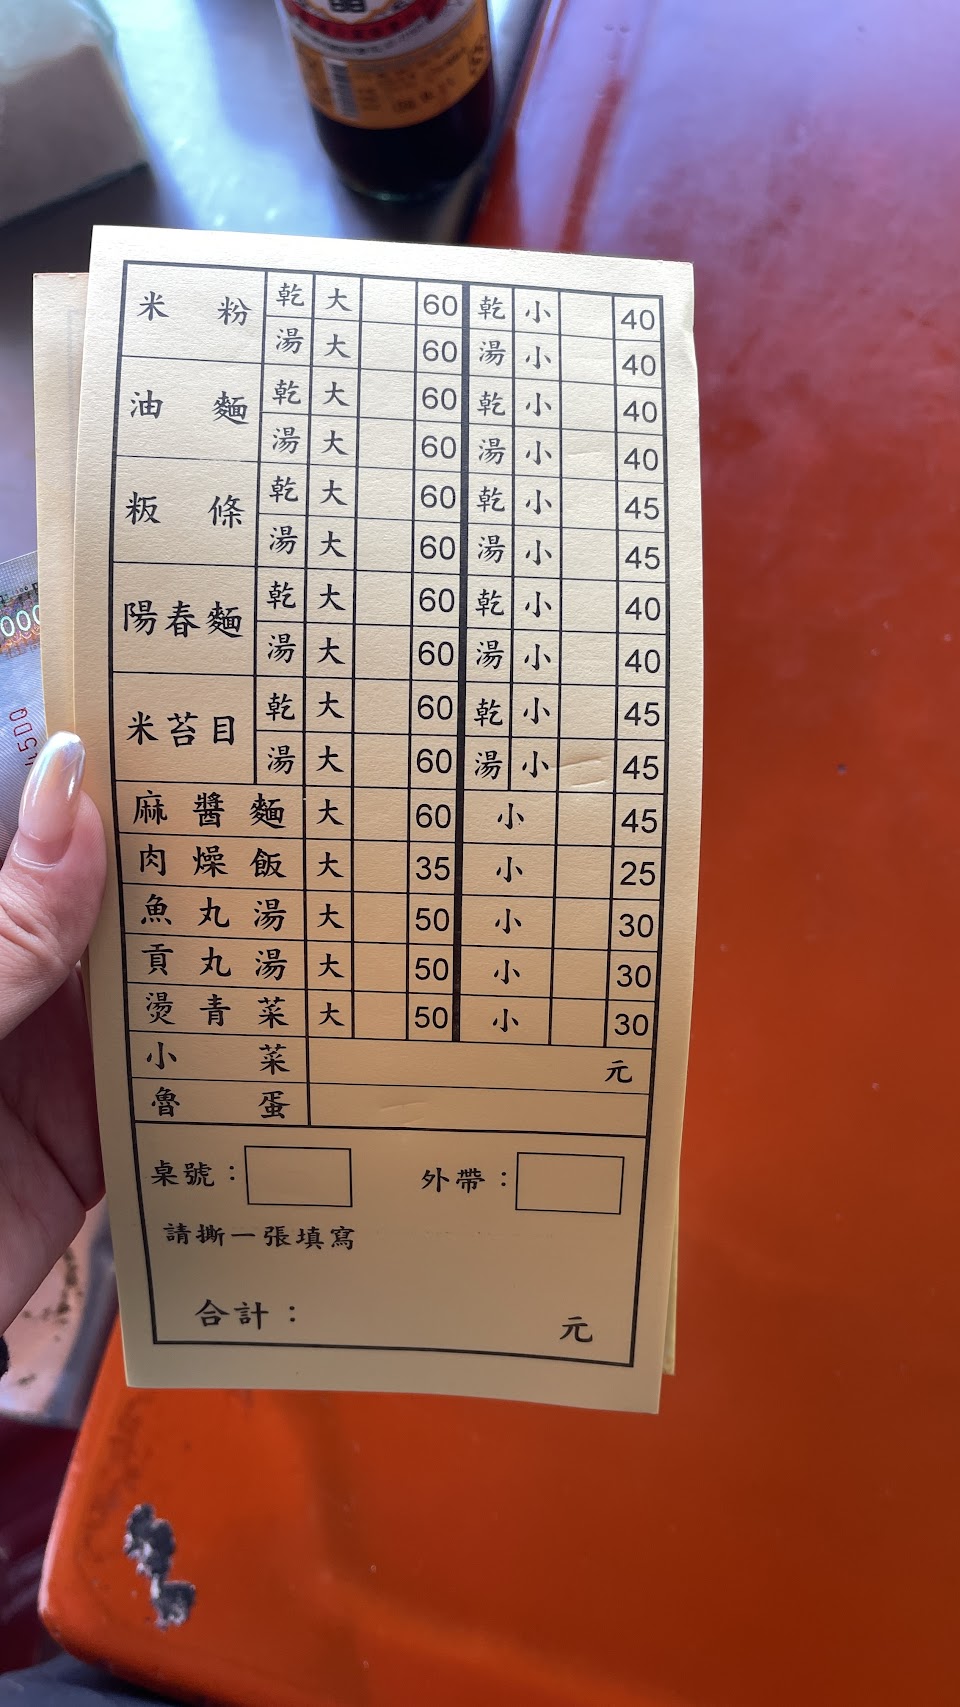 米粉 乾 大 60 乾 小 40
湯 大 60 湯 小 40
油麵 乾 大 60 乾 小 40
湯 大 60 湯 小 40
粄條 乾 大 60 乾 小 45
湯 大 60 湯 小 45
陽春麵 乾 大 60 乾 小 40
湯 大 60 湯 小 40
米苔目 乾 大 60 乾 小 45
湯 大 60 湯 小 45
麻醬麵 大 60 小 45
肉燥飯 大 35 小 25
魚丸湯 大 50 小 30
貢丸湯 大 50 小 30
燙青菜 大 50 小 30
小菜 元
魯蛋
桌號： 外帶：
請撕一張填寫
合計： 元